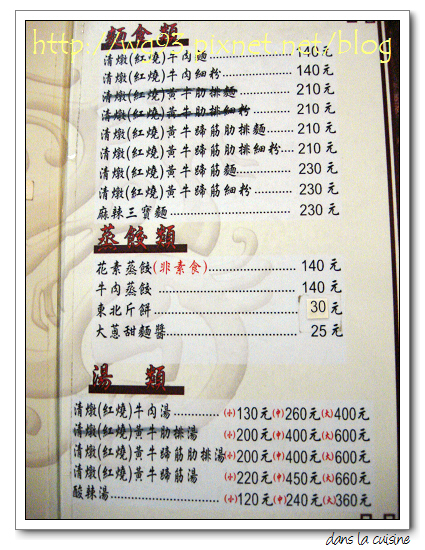 http://wg93.pixnet.net/blog
麵食類
清燉(紅燒)牛肉麵 140元
清燉(紅燒)牛肉細粉 140元
清燉(紅燒)黃牛肋排麵 210元
清燉(紅燒)黃牛肋排細粉 210元
清燉(紅燒)黃牛蹄筋肋排麵 210元
清燉(紅燒)黃牛蹄筋肋排細粉 210元
清燉(紅燒)黃牛蹄筋麵 230元
清燉(紅燒)黃牛蹄筋細粉 230元
麻辣三寶麵 230元
蒸餃類
花素蒸餃(非素食) 140元
牛肉蒸餃 140元
東北斤餅 30元
大蔥甜麵醬 25元
湯 類
清燉(紅燒)牛肉湯 (小)130元(中)260元(大)400元
清燉(紅燒)黃牛肋排湯 (小)200元(中)400元(大)600元
清燉(紅燒)黃牛蹄筋肋排湯 (小)200元(中)400元(大)600元
清燉(紅燒)黃牛蹄筋湯 (小)220元(中)450元(大)660元
酸辣湯 (小)120元(中)240元(大)360元
dans la cuisine